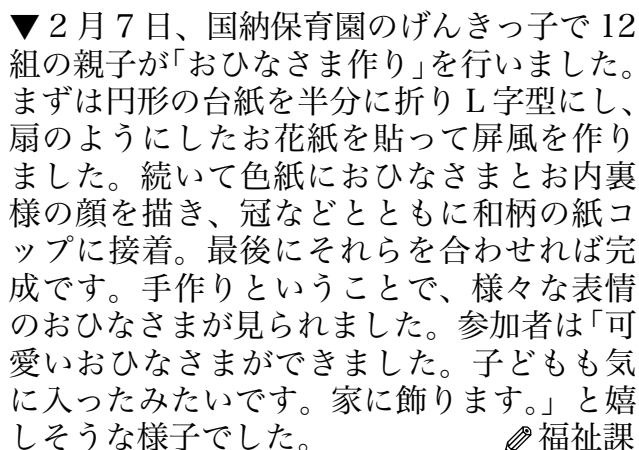 ▼2月7日、国納保育園のげんきっ子で12
組の親子が「おひなさま作り」を行いました。
まずは円形の台紙を半分に折りL字型にし、
扇のようにしたお花紙を貼って屏風を作り
ました。続いて色紙におひなさまとお内裏
様の顔を描き、冠などとともに和柄の紙コ
ップに接着。最後にそれらを合わせれば完
成です。手作りということで、様々な表情
のおひなさまが見られました。参加者は「可
愛いおひなさまができました。子どもも気
に入ったみたいです。家に飾ります。」と嬉
しそうな様子でした。 ✐福祉課